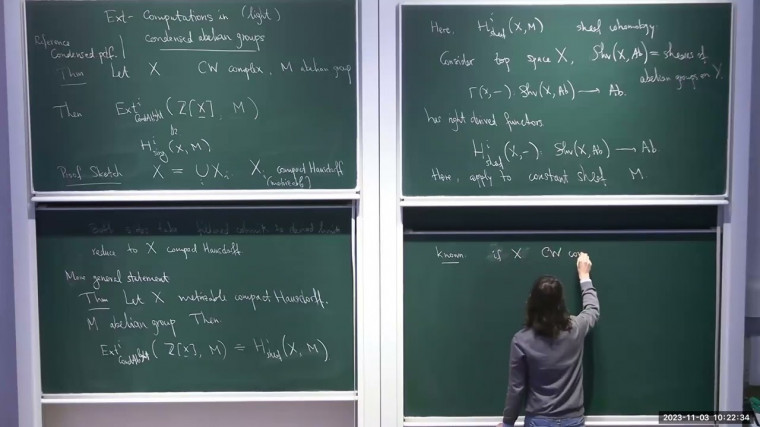 Ext- Computations in (light)
condensed abelian groups
Reference
Condensed.pdf.
Thm Let X CW complex, M abelian group
Then Ext^i_CondAb^light (Z[X], M)
≅
H^i_sing (X, M)
Proof Sketch X = ∪ X_i. X_i compact Hausdorff
(metrizable)
Both sides take
reduce to X compact Hausdorff
More general statement
Thm Let X metrizable compact Hausdorff.
M abelian group Then:
Ext^i_CondAb^light (Z[X], M) = H^i_sheaf (X, M)
Here, H^i_sheaf (X, M) sheaf cohomology.
Consider top space X, Shv(X, Ab) = sheaves of
abelian groups on X.
Γ(X, -): Shv(X, Ab) → Ab.
has right derived functors.
H^i_sheaf (X, -): Shv(X, Ab) → Ab
Here, apply to constant sheaf M.
Known: is X CW com
2023-11-03 10:22:34